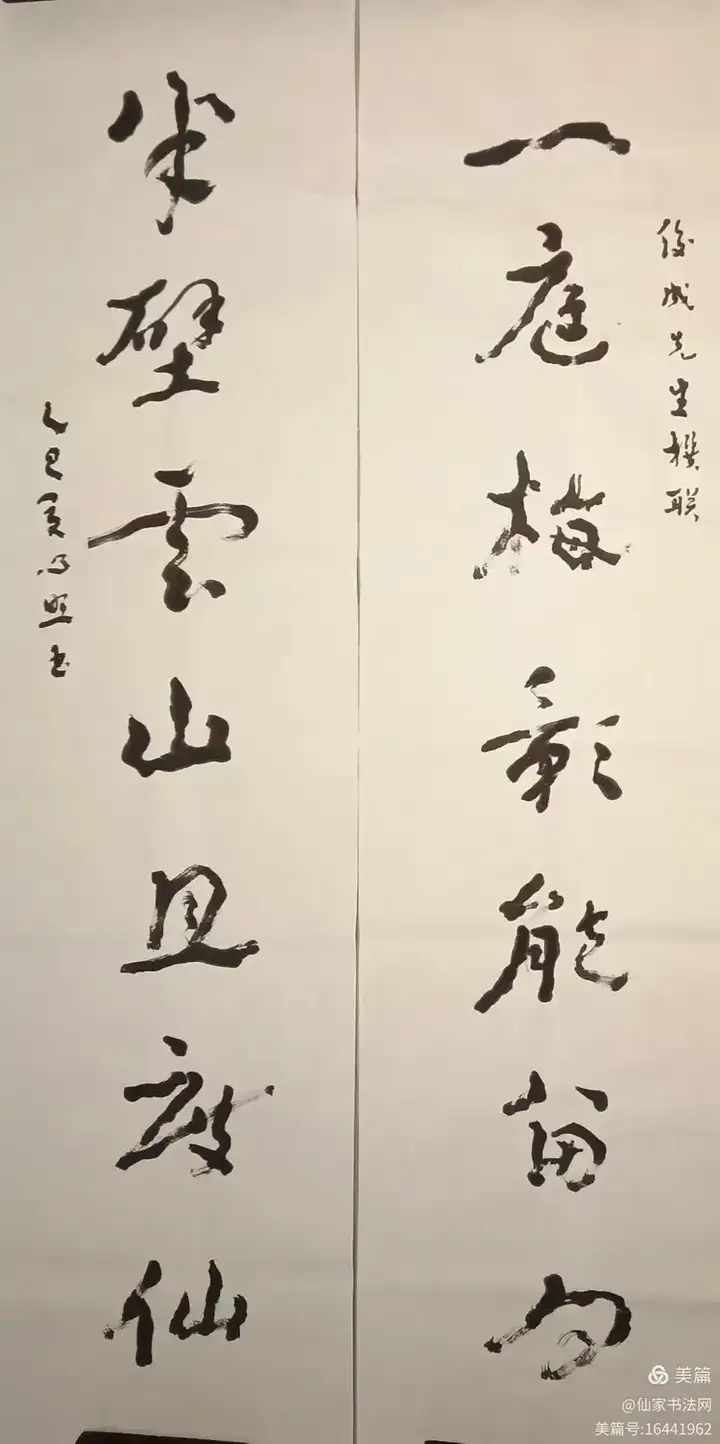 一庭梅影能留句
俊成先生撰联
半壁云山且度仙
乙巳夏 书
美篇
@仙家书法网
美篇号:16441962